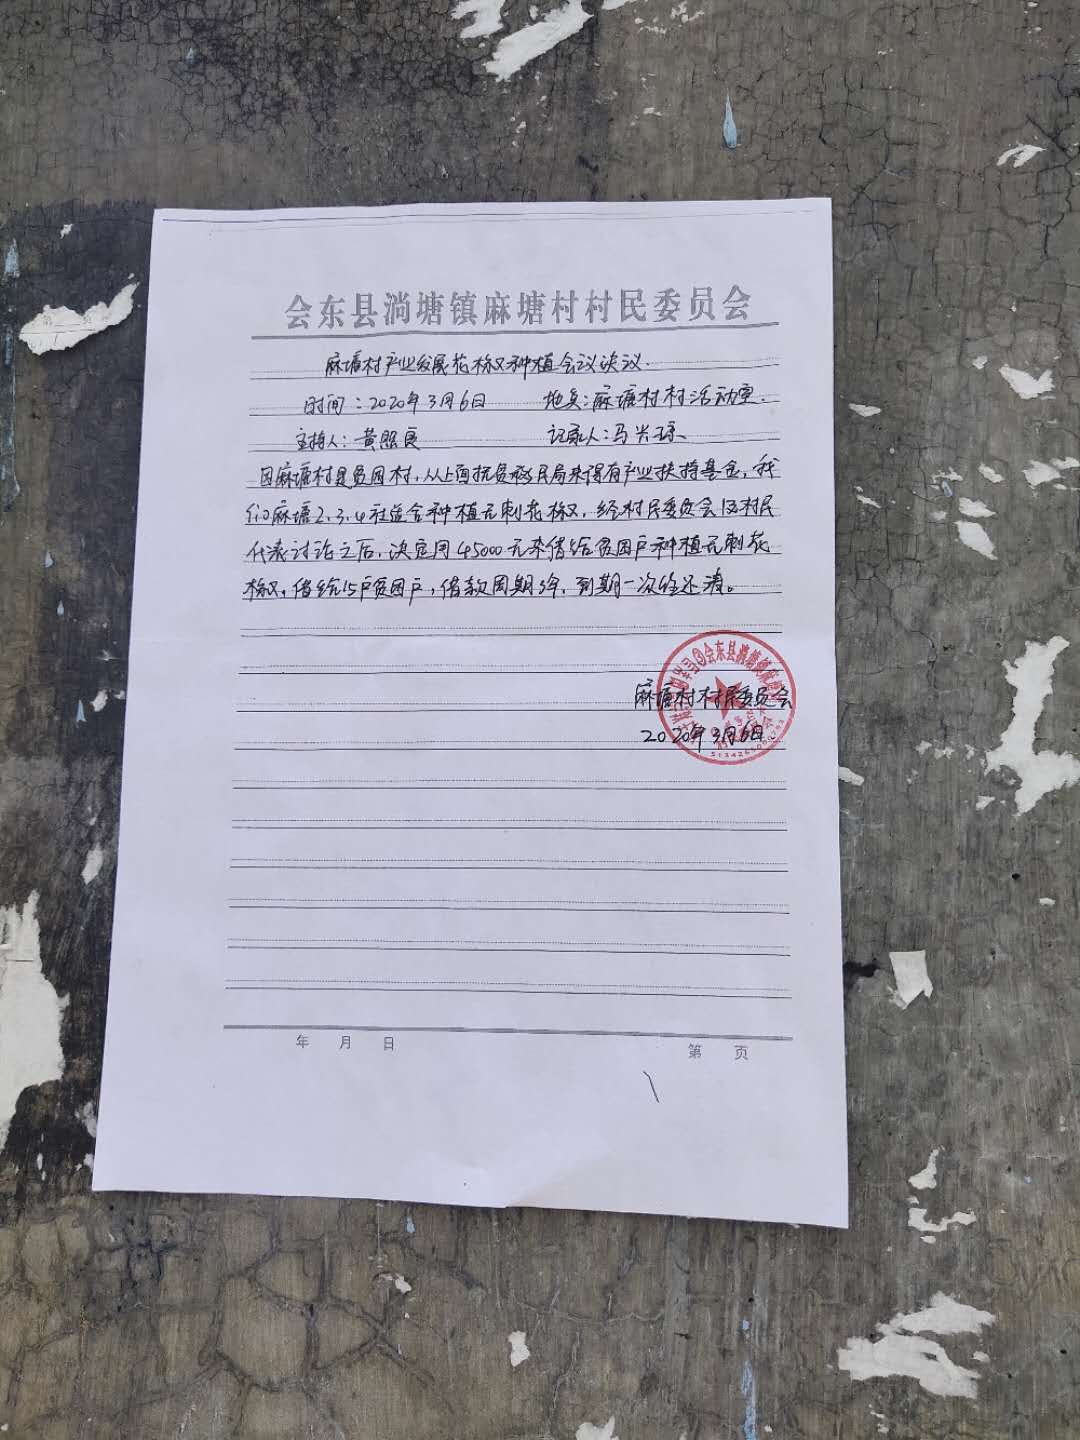 会东县淌塘镇麻塘村村民委员会
麻塘村产业发展花椒种植会议决议.
时间:2020年3月6日 地点:麻塘村村活动室.
主持人:黄照良 记录人:马兴琼
因麻塘村是贫困村,从上面扶贫移民局来得有产业扶持基金,我
们麻塘2.3.4社适合种植无刺花椒,经村民委员会及村民
代表讨论之后,决定用45000元来借给贫困户种植无刺花
椒,借给15户贫困户,借款周期3年,到期一次性还清。
麻塘村村民委员会
2020年3月6日.
年 月 日
第 页